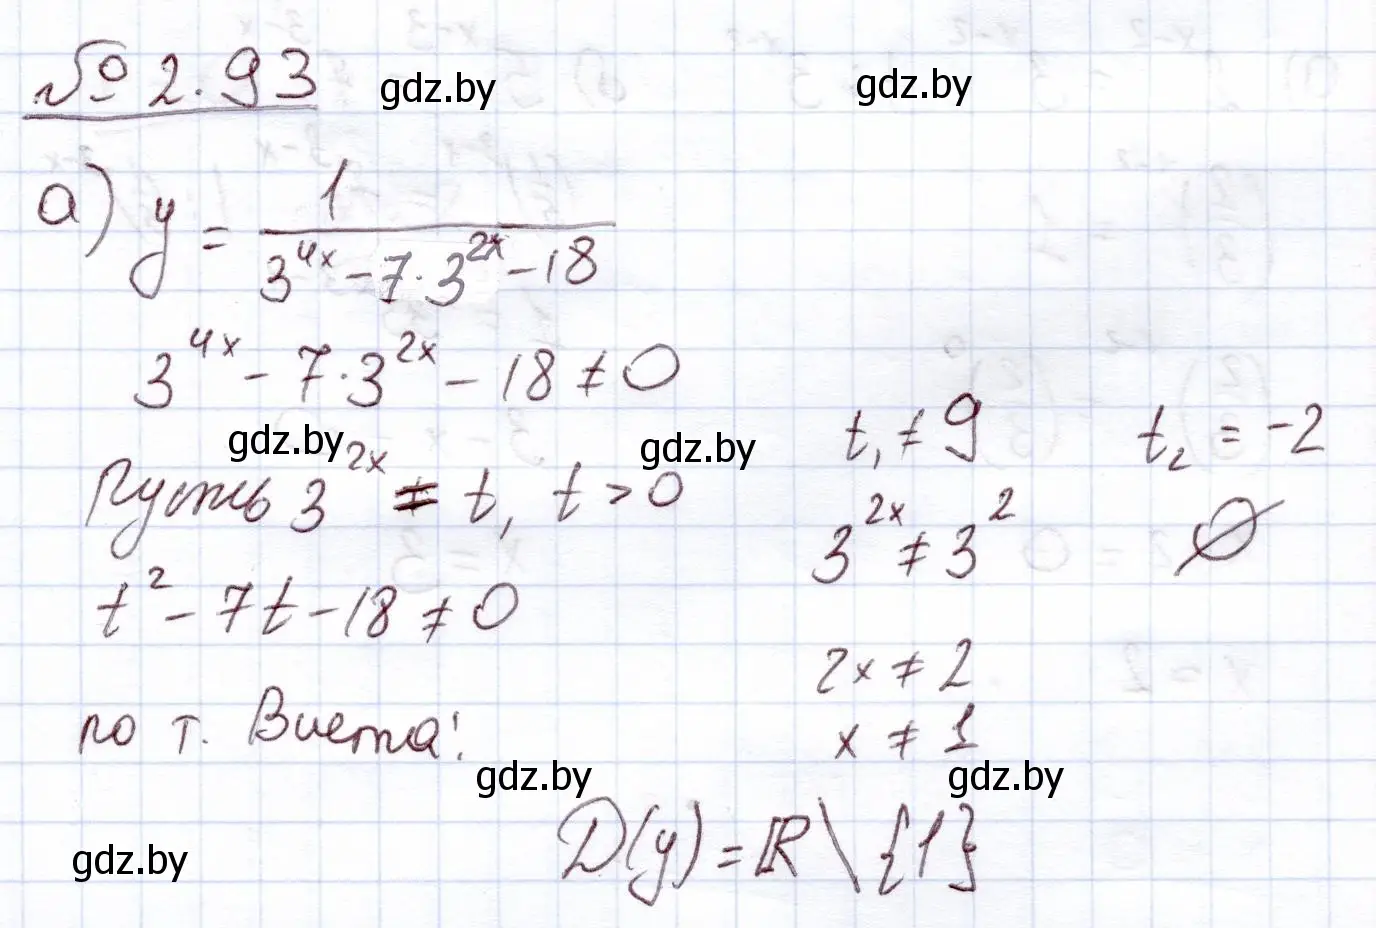 № 2.93
gdz.by
gdz.by
а) y = 1 / (3^{4x} - 7·3^{2x} - 18)
3^{4x} - 7·3^{2x} - 18 ≠ 0
gdz.by
gdz.by
Пусть 3^{2x} = t, t > 0
t² - 7t - 18 ≠ 0
по т. Виета:
t₁ ≠ 9 t₂ = -2
3^{2x} ≠ 3² ∅
2x ≠ 2
x ≠ 1
gdz.by
gdz.by
gdz.by
D(y) = ℝ \ {1}